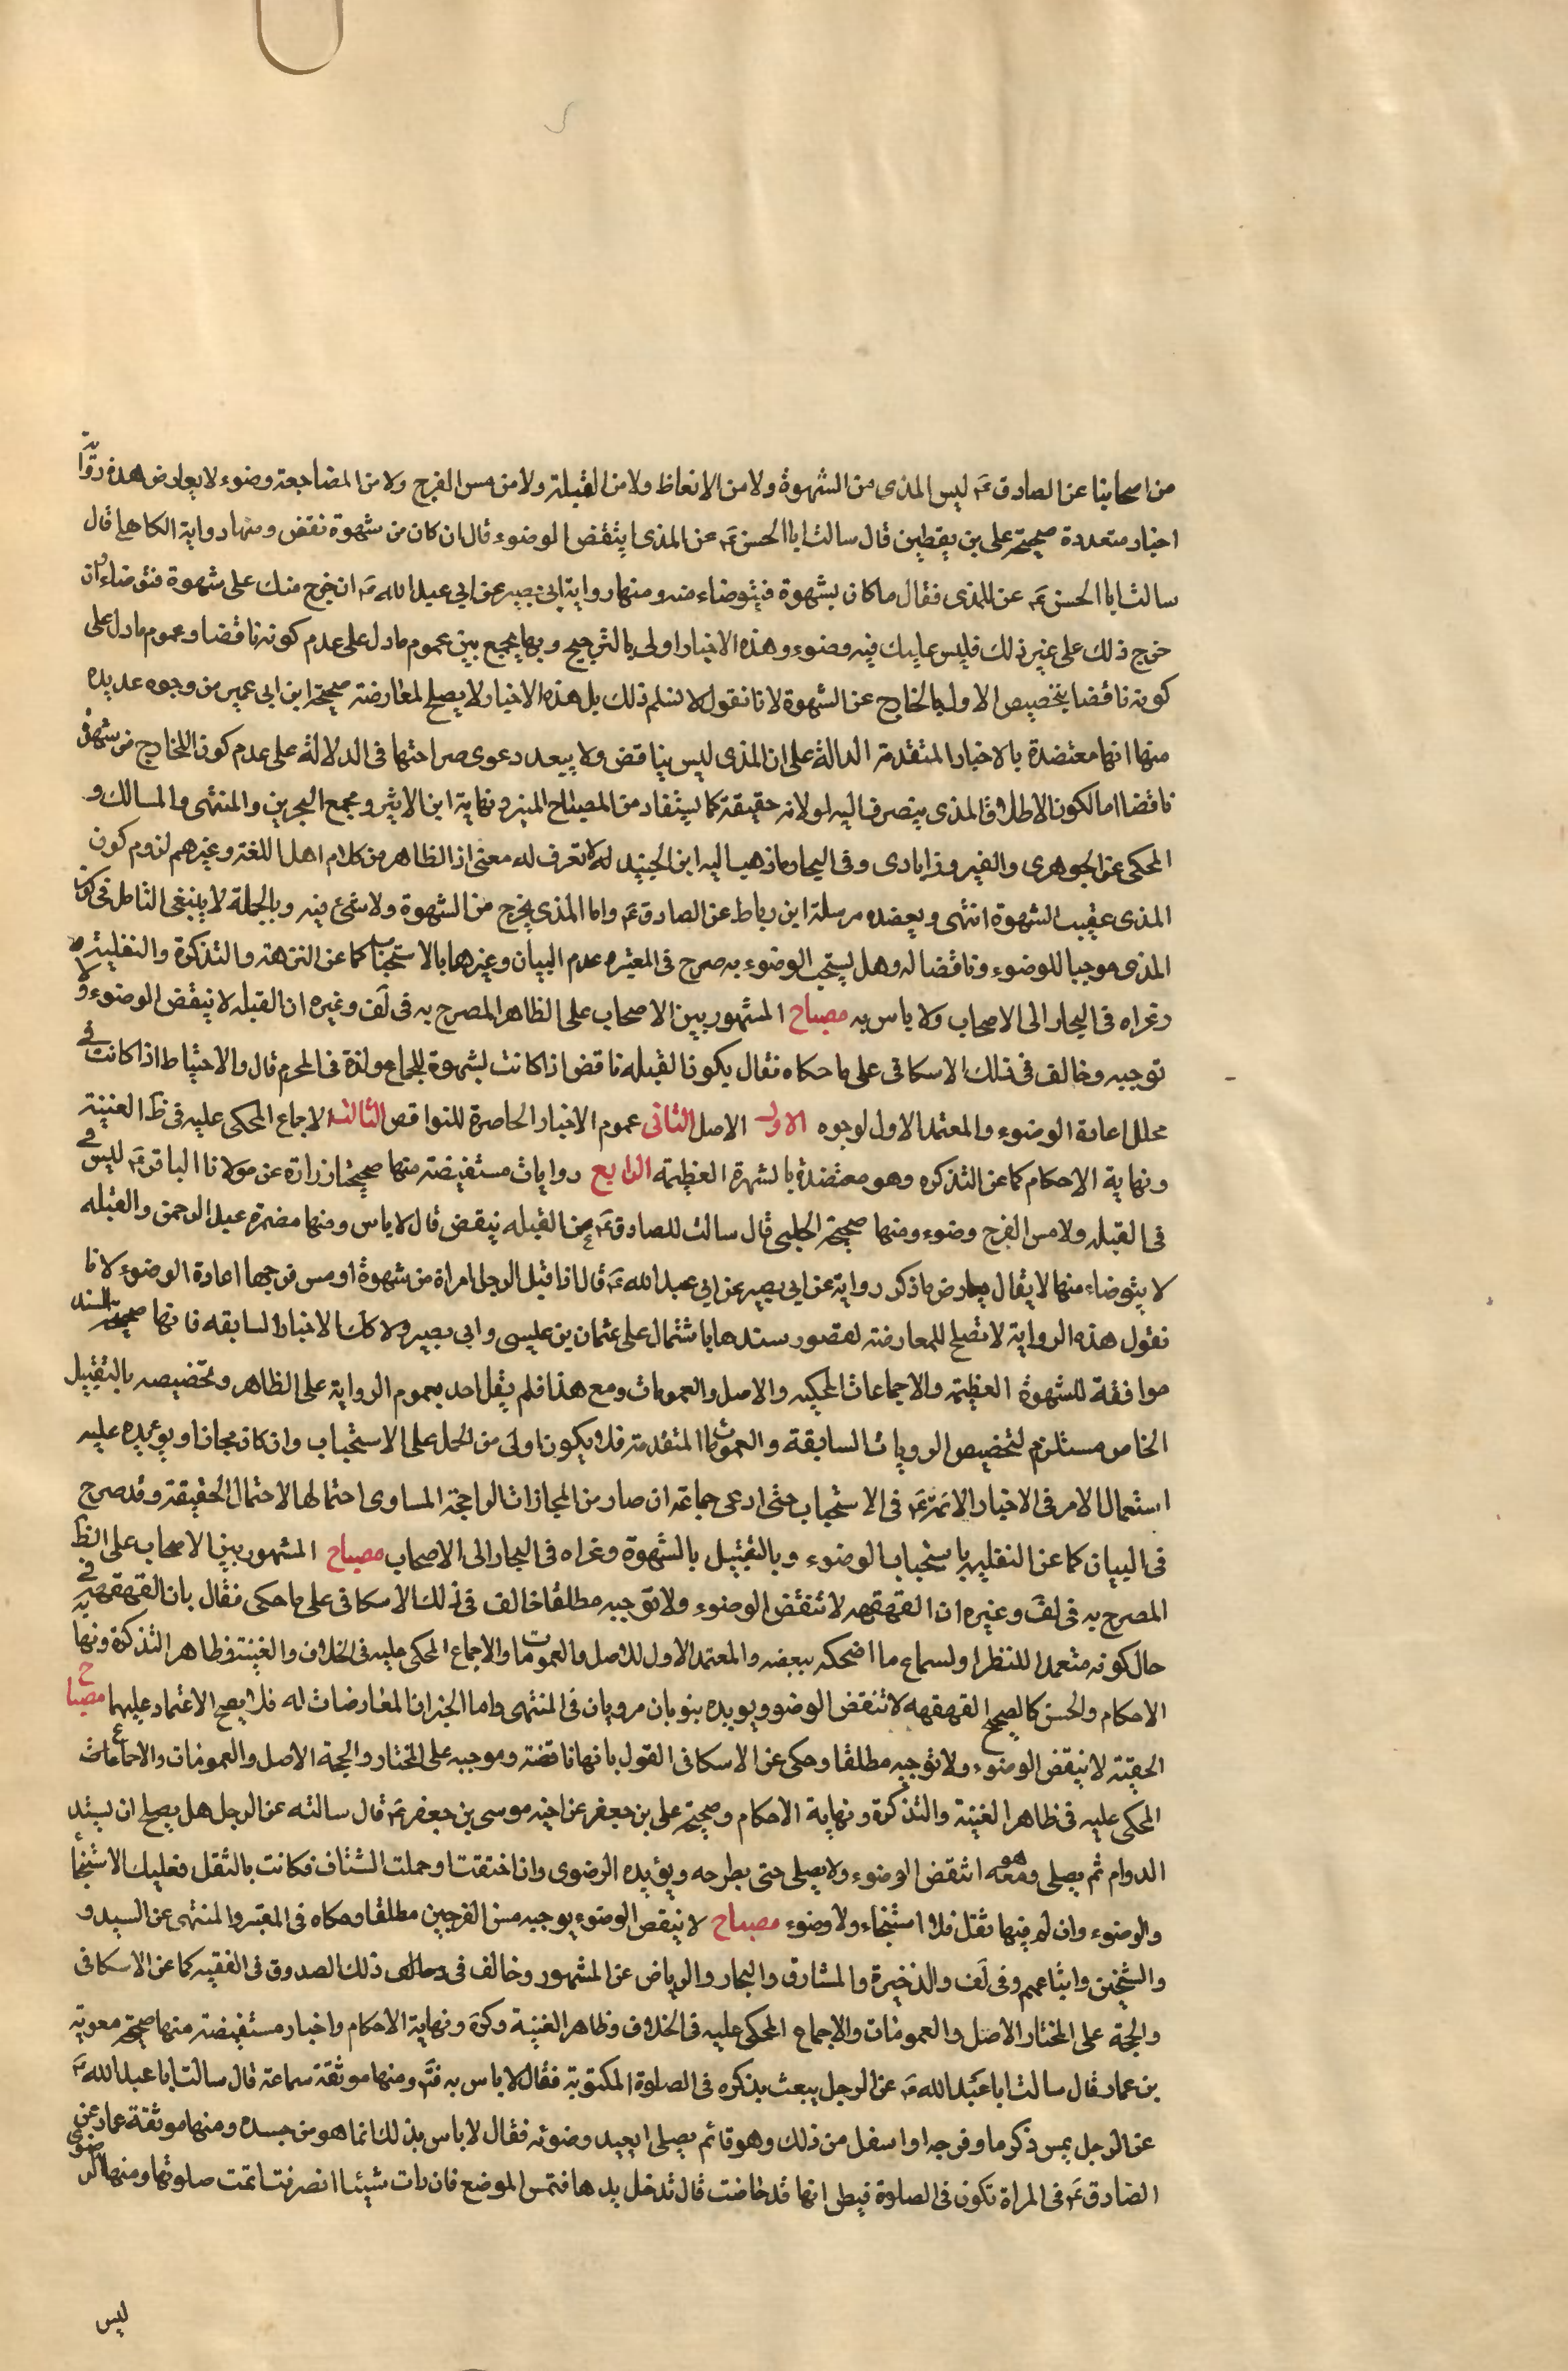 من اصحابنا عن الصادق عَ ليس المذى من الشهوة ولا من الانعاظ ولا من القبلة ولا من مس الفرج ولا من المضاجعة وضوء لا يعارض هذه رواية
اخبار متعددة صحيحة على بن يقطين قال سالت ابا الحسن عَ عن المذى اينقض الوضوء قال ان كان من شهوة نقض ومنها رواية الكاهلى قال
سالت ابا الحسن عَ عن المذى فقال ما كان بشهوة فيتوضاء منه ومنها رواية ابى بصير عن ابى عبد الله عَ ان خرج منك على شهوة فتوضاء وان
خرج ذلك على غير ذلك فليس عليك فيه وضوء وهذه الاخبار اولى بالترجيح وبها يجمع بين عموم ما دل على عدم كونه ناقضا وعموم ما دل على
كونه ناقضا بتخصيص الاول بالخارج عن الشهوة لانا نقول لا نسلم ذلك بل هذه الاخبار لا يصلح لمعارضة صحيحة ابن ابى عمير من وجوه عديده
منها انها معتضدة بالاخبار المتقدمة الدالة على ان المذى ليس بناقض ولا يبعد دعوى صراحتها فى الدلالة على عدم كون الخارج من شهوة
ناقضا اما لكون الاطلاق المذى ينصرف اليه او لانه حقيقة كما يستفاد من المصباح المنير ونهاية ابن الاثير ومجمع البحرين والمنتهى والمسالك و
المحكى عن الجوهرى والفيروزابادى وفى البحار ما ذهب اليه ابن الجنيد لا نعرف له معنى اذ الظاهر من كلام اهل اللغة وغيرهم لزوم كون
المذى عقيب الشهوة انتهى ويعضده مرسلة ابن رباط عن الصادق عَ واما المذى يخرج من الشهوة ولا شئ فيه وبالجملة لا ينبغى التامل فى كون
المذى موجبا للوضوء وناقضا له وهل يستحب الوضوء به صرح فى المعتبر عدم البيان وغيرها بالاستحباب كما عن النزهة والتذكرة والنفلية
وعزاه فى البحار الى الاصحاب ولا باس به مصباح المشهور بين الاصحاب على الظاهر المصرح به فى لف وغيره ان القبله لا ينقض الوضوء ولا
توجبه وخالف فى ذلك الاسكافى على ما حكاه فقال يكون القبله ناقض اذا كانت بشهوة للجماع ولذة فى المحرم قال والاحتياط اذا كانت فى
محلل اعادة الوضوء والمعتمد الاول لوجوه الاول الاصل الثانى عموم الاخبار الحاصرة للنواقص الثالث الاجماع المحكى عليه فى ظَ الغنية
ونهاية الاحكام كما عن التذكره وهو معتضدة بالشهرة العظيمة الرابع روايات مستفيضة منها صحيحة زرارة عن مولانا الباقر عَ ليس فى
فى القبله ولا مس الفرج وضوء ومنها صحيحة الحلبى قال سالت للصادق عَ عن القبله ينقض قال لا باس ومنها مضمرة عبد الرحمن والقبله
لا يتوضاء منها لا يقال يعارض ما ذكر رواية عن ابى بصير عن ابى عبد الله عَ قال اذا قبل الرجل امراة من شهوة او مس فرجها اعادة الوضوء لانا
نقول هذه الرواية لا تصلح للمعارضة لقصور سندها باشتمال على عثمان بن عليسى وابى بصير ولا كك الاخبار السابقه فانها صحيحة السند
موافقة للشهوة العظيمة والاجماعات المحكيه والاصل والعمومات ومع هذا فلم يقل احد بعموم الرواية على الظاهر وتخصيصه بالتقبيل
الخاص مستلزم لتخصيص الرويات السابقة والعمومات المتقدمة فلا يكون اولى من الحمل على الاستحباب وان كان مجازا ويويده عليه
استعمال الامر فى الاخبار الائمة عَ فى الاستحباب حتى ادعى جماعة ان صار من المجازات الراجحة المساوى احتمالها لاحتمال الحقيقة وقد صرح
فى البيان كما عن النفليه باستحباب الوضوء وبالتقبيل بالشهوة وعزاه فى البحار الى الاصحاب مصباح المشهور بين الاصحاب على الظَ
المصرح به فى لف وغيره ان القهقهه لا تنقض الوضوء ولا توجبه مطلقا خالف فى ذلك الاسكافى على ما حكى فقال بان القهقهه فى
حال كونه متعمدا للنظر او لسماع ما اضحكه ببعضه والمعتمد الاول للاصل والعمومات والاجماع المحكى عليه فى الخلاف والغنية وظاهر التذكرة ونهاية
الاحكام والحسن كالصحيح القهقهه لا تنقض الوضوء ويويده بنويان مرويان فى المنتهى واما الخبران المعارضات له فلا يصح الاعتماد عليهما مصباح
الحقنة لا ينقض الوضوء ولا توجبه مطلقا وحكى عن الاسكافى القول بانها ناقضة وموجبه على المختار والحجة الاصل والعمومات والاجماعات
المحكى عليه فى ظاهر الغنية والتذكرة ونهاية الاحكام وصحيحة على بن جعفر عن اخيه موسى بن جعفر عَ قال سالته عن الرجل هل يصلح ان يستد
الدوام ثم يصلى وهو معه انتقض الوضوء ولا يصلى حتى يطرحه ويؤيده الرضوى وان احتقنت او حملت الشثاف فكانت بالثقل فعليك الاستنجاء
والوضوء وان لم فيها ثقل فلا استنجاء ولا وضوء مصباح لا ينقض الوضوء يوجبه مس الفرجين مطلقا وحكاه فى المعتبر والمنتهى عن السيد و
والشيخين واتباعهم وفى لف والذخيرة والمشارق والبحار والرياض عن المشهور وخالف فى ذلك الصدوق فى الفقيه كما عن الاسكافى
والحجة على المختار الاصل والعمومات والاجماع المحكى عليه فى الخلاف وظاهر الغنية وكرَة ونهاية الاحكام واخبار مستفيضة منها صحيحة معوية
بن عمار قال سالت ابا عبد الله عَ عن الرجل يبعث بذكره فى الصلوة المكتوبة فقال لا باس به ومنها موثقة سماعة قال سالت ابا عبد الله عَ
عن الرجل يمس ذكره او فرجه او اسفل من ذلك وهو قائم يصلى ايعيد وضوئه فقال لا باس بذلك انما هو من جسده ومنها موثقة عمار عن
الصادق عَ فى المراة تكون فى الصلوة فيظن انها قد حاضت قال تدخل يدها فتمس الموضع فان رات شيئا انصرفت اتمت صلوتها ومنها الرضوى
ليس